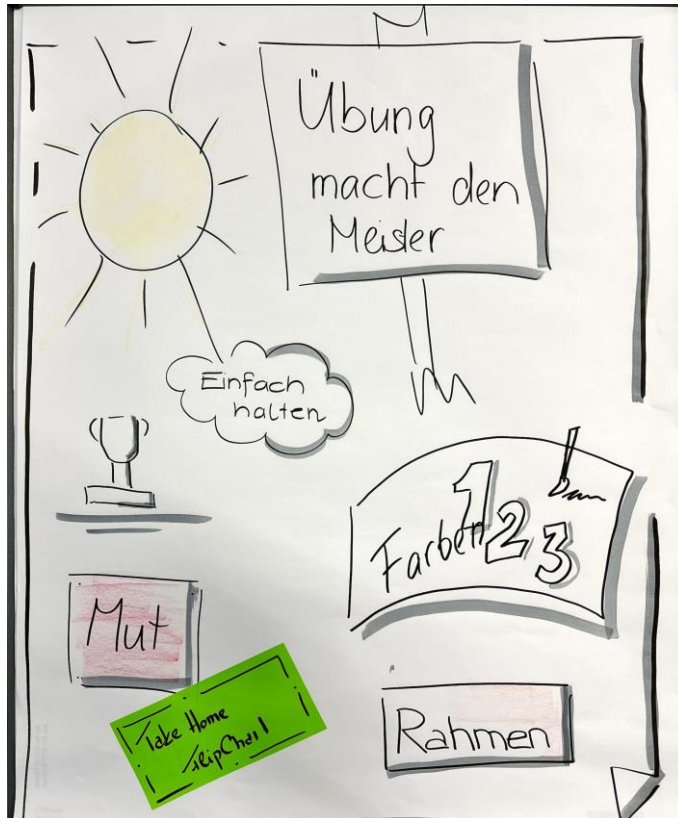 Übung
macht den
Meister
Einfach
halten
Farben 1 2 3
Mut
Take Home
FlipChart
Rahmen